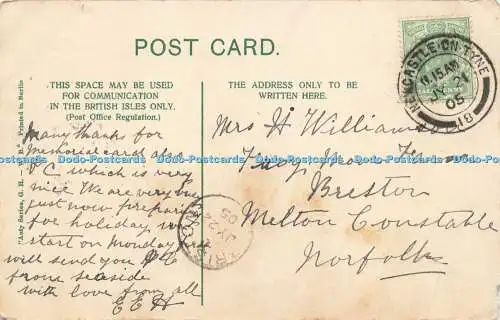 POST CARD.
THIS SPACE MAY BE USED
FOR COMMUNICATION
IN THE BRITISH ISLES ONLY.
(Post Office Regulation.)
THE ADDRESS ONLY TO BE
WRITTEN HERE.
NEWCASTLE-ON-TYNE
9.15 AM
JY 21
05
18
Many thanks for
Memorial card also
P.C which is very
nice We are very busy
just now preparing
for holiday
start on Monday
will send you P.C
from seaside
with love from all
E E H
Mrs H Williamson
Farm
Breston
Melton Constable
Norfolk
JY 2
05
Printed in Berlin
Dodo-Postcards Dodo-Postcards Dodo-Postcards Dodo-Postcards Dodo-Postcards